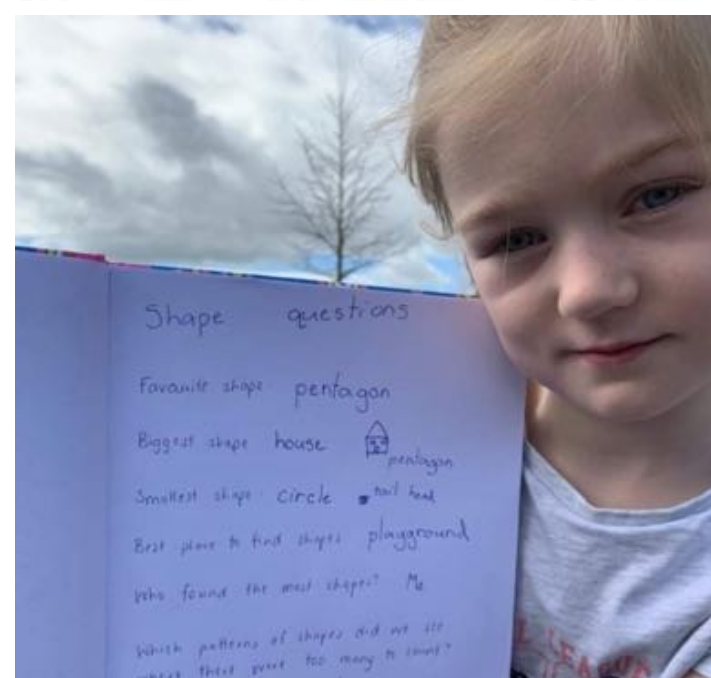 Shape questions
Favourite shape pentagon
Biggest shape house pentagon
Smallest shape circle nail head
Best place to find shapes playground
Who found the most shapes? Me
Which patterns of shapes did we see
where there were too many to count?
LEAGU